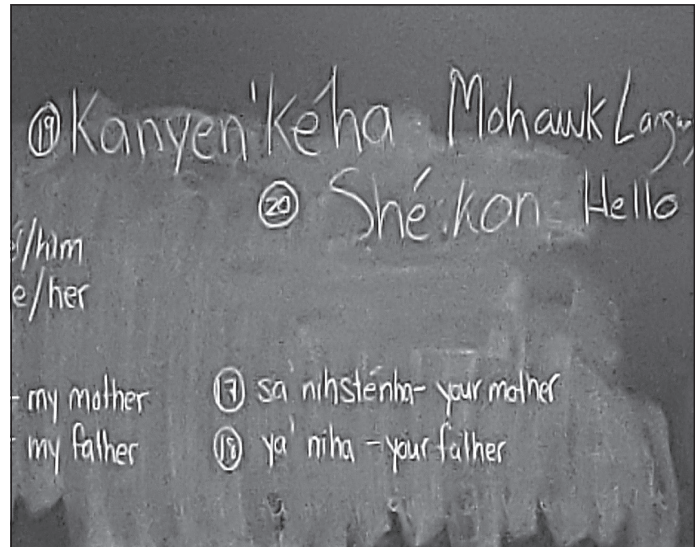 ⑲ Kanyen'kéha Mohawk Lang
⑳ Shé:kon Hello
/him
e/her
- my mother ⑰ sa'nihsténha - your mother
- my father ⑱ ya'niha - your father